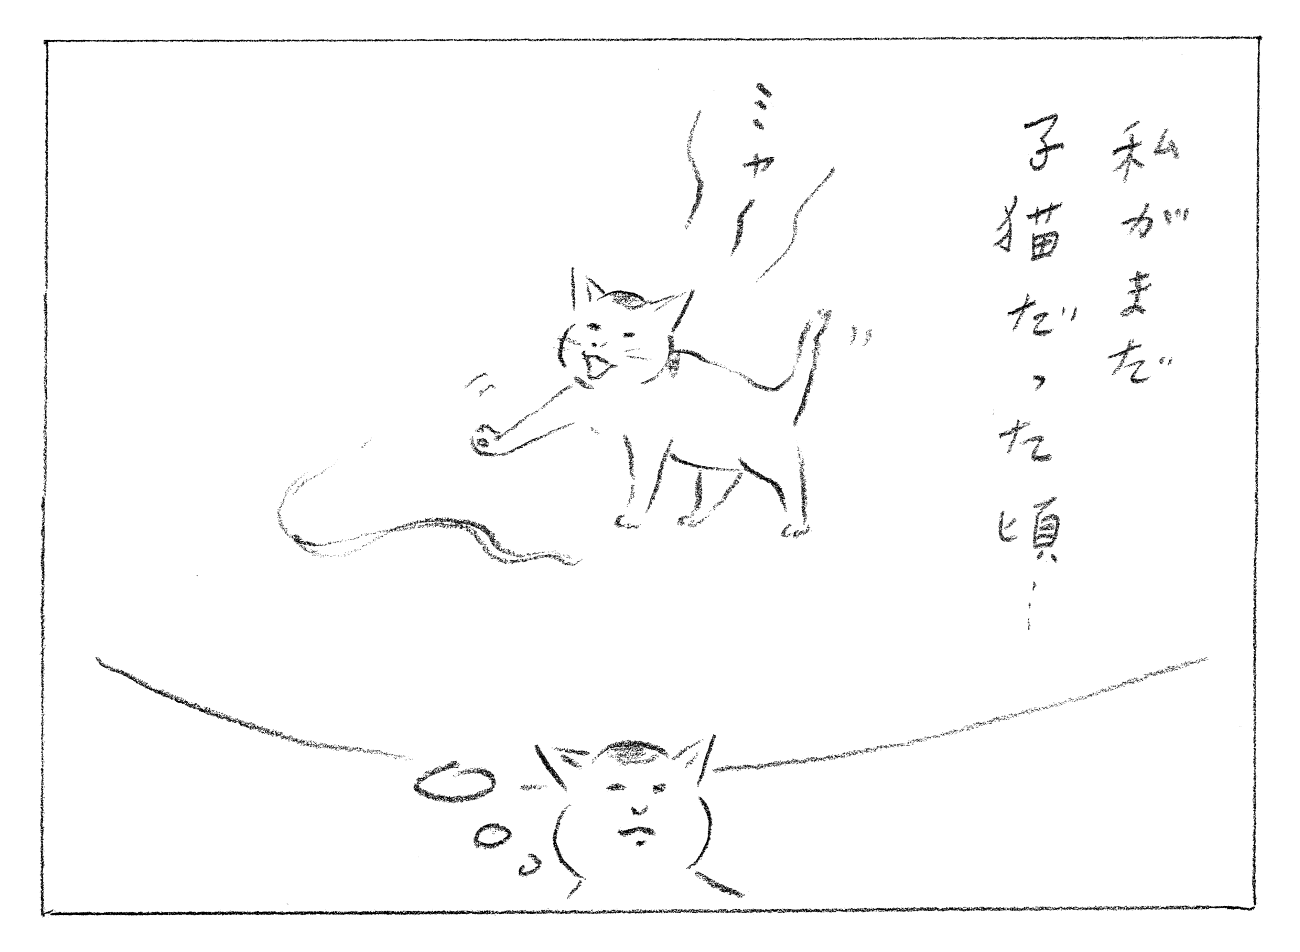 私がまだ
子猫だった頃…
ミャー